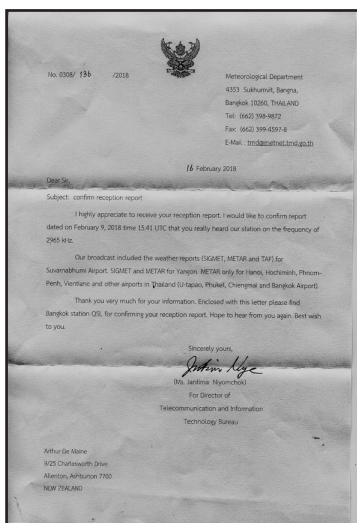 No. 0308/ 136 /2018
Meteorological Department
4353 Sukhumvit, Bangna,
Bangkok 10260, THAILAND
Tel: (662) 398-9872
Fax: (662) 399-4597-8
E-Mail : tmd@metnet.tmd.go.th
16 February 2018
Dear Sir,
Subject: confirm reception report
I highly appreciate to receive your reception report. I would like to confirm report
dated on February 9, 2018 time 15.41 UTC that you really heard our station on the frequency of
2965 kHz.
Our broadcast included the weather reports (SIGMET, METAR and TAF) for
Suvarnabhumi Airport. SIGMET and METAR for Yangon. METAR only for Hanoi, Hochiminh, Phnom-
Penh, Vientiane and other airports in Thailand (U-tapao, Phuket, Chiengmai and Bangkok Airport).
Thank you very much for your information. Enclosed with this letter please find
Bangkok station QSL for confirming your reception report. Hope to hear from you again. Best wish
to you.
Sincerely yours,
(Ms. Jantima Niyomchok)
For Director of
Telecommunication and Information
Technology Bureau
Arthur De Maine
9/25 Charlesworth Drive
Allenton, Ashburton 7700
NEW ZEALAND